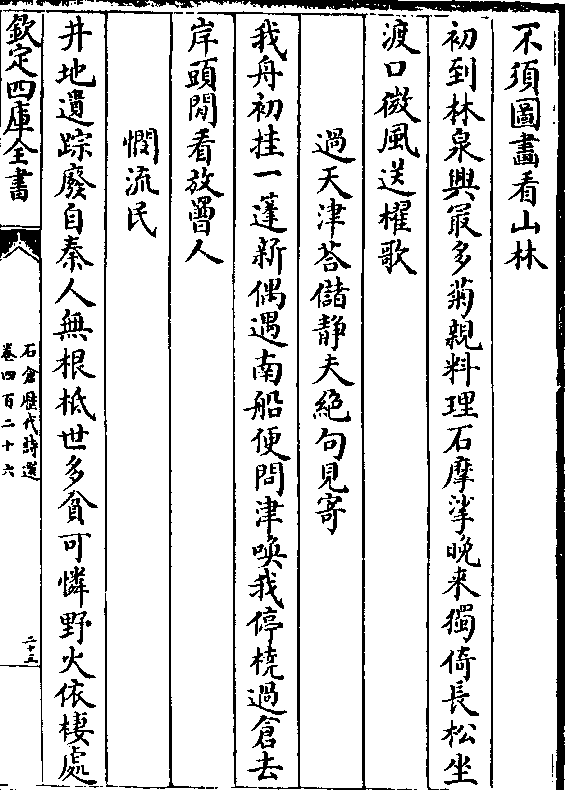 不須圖畫看山林
初到林泉興最多菊親料理石摩挲晚来獨倚長松坐
渡口微風送櫂歌
過天津荅儲静夫絶句見寄
我舟初挂一蓬新偶遇南船便問津喚我停橈過倉去
岸頭閒看放罾人
憫流民
井地遺踪廢自秦人無根柢世多貧可憐野火依棲處
欽定四庫全書
石倉歴代詩選
卷四百二十六
二十三